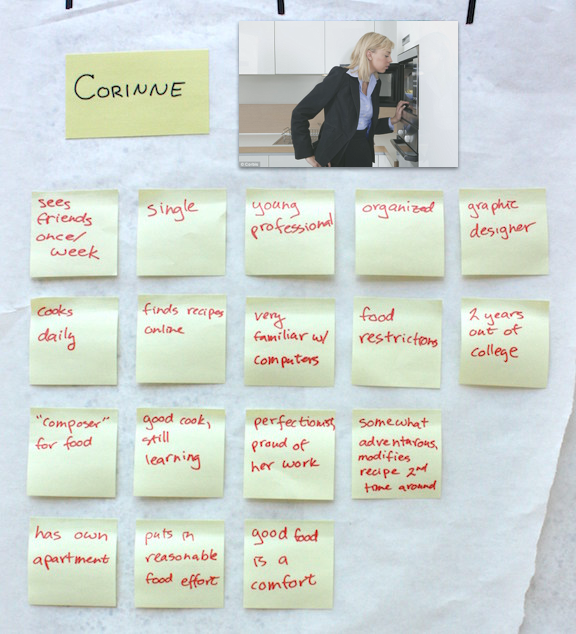 CORINNE
sees
friends
once/
week
single
young
professional
organized
graphic
designer
cooks
daily
finds recipes
online
very
familiar w/
computers
food
restrictions
2 years
out of
college
"composer"
for food
good cook,
still
learning
perfectionist,
proud of
her work
somewhat
adventurous,
modifies
recipe 2nd
time around
has own
apartment
puts in
reasonable
food effort
good food
is a
comfort